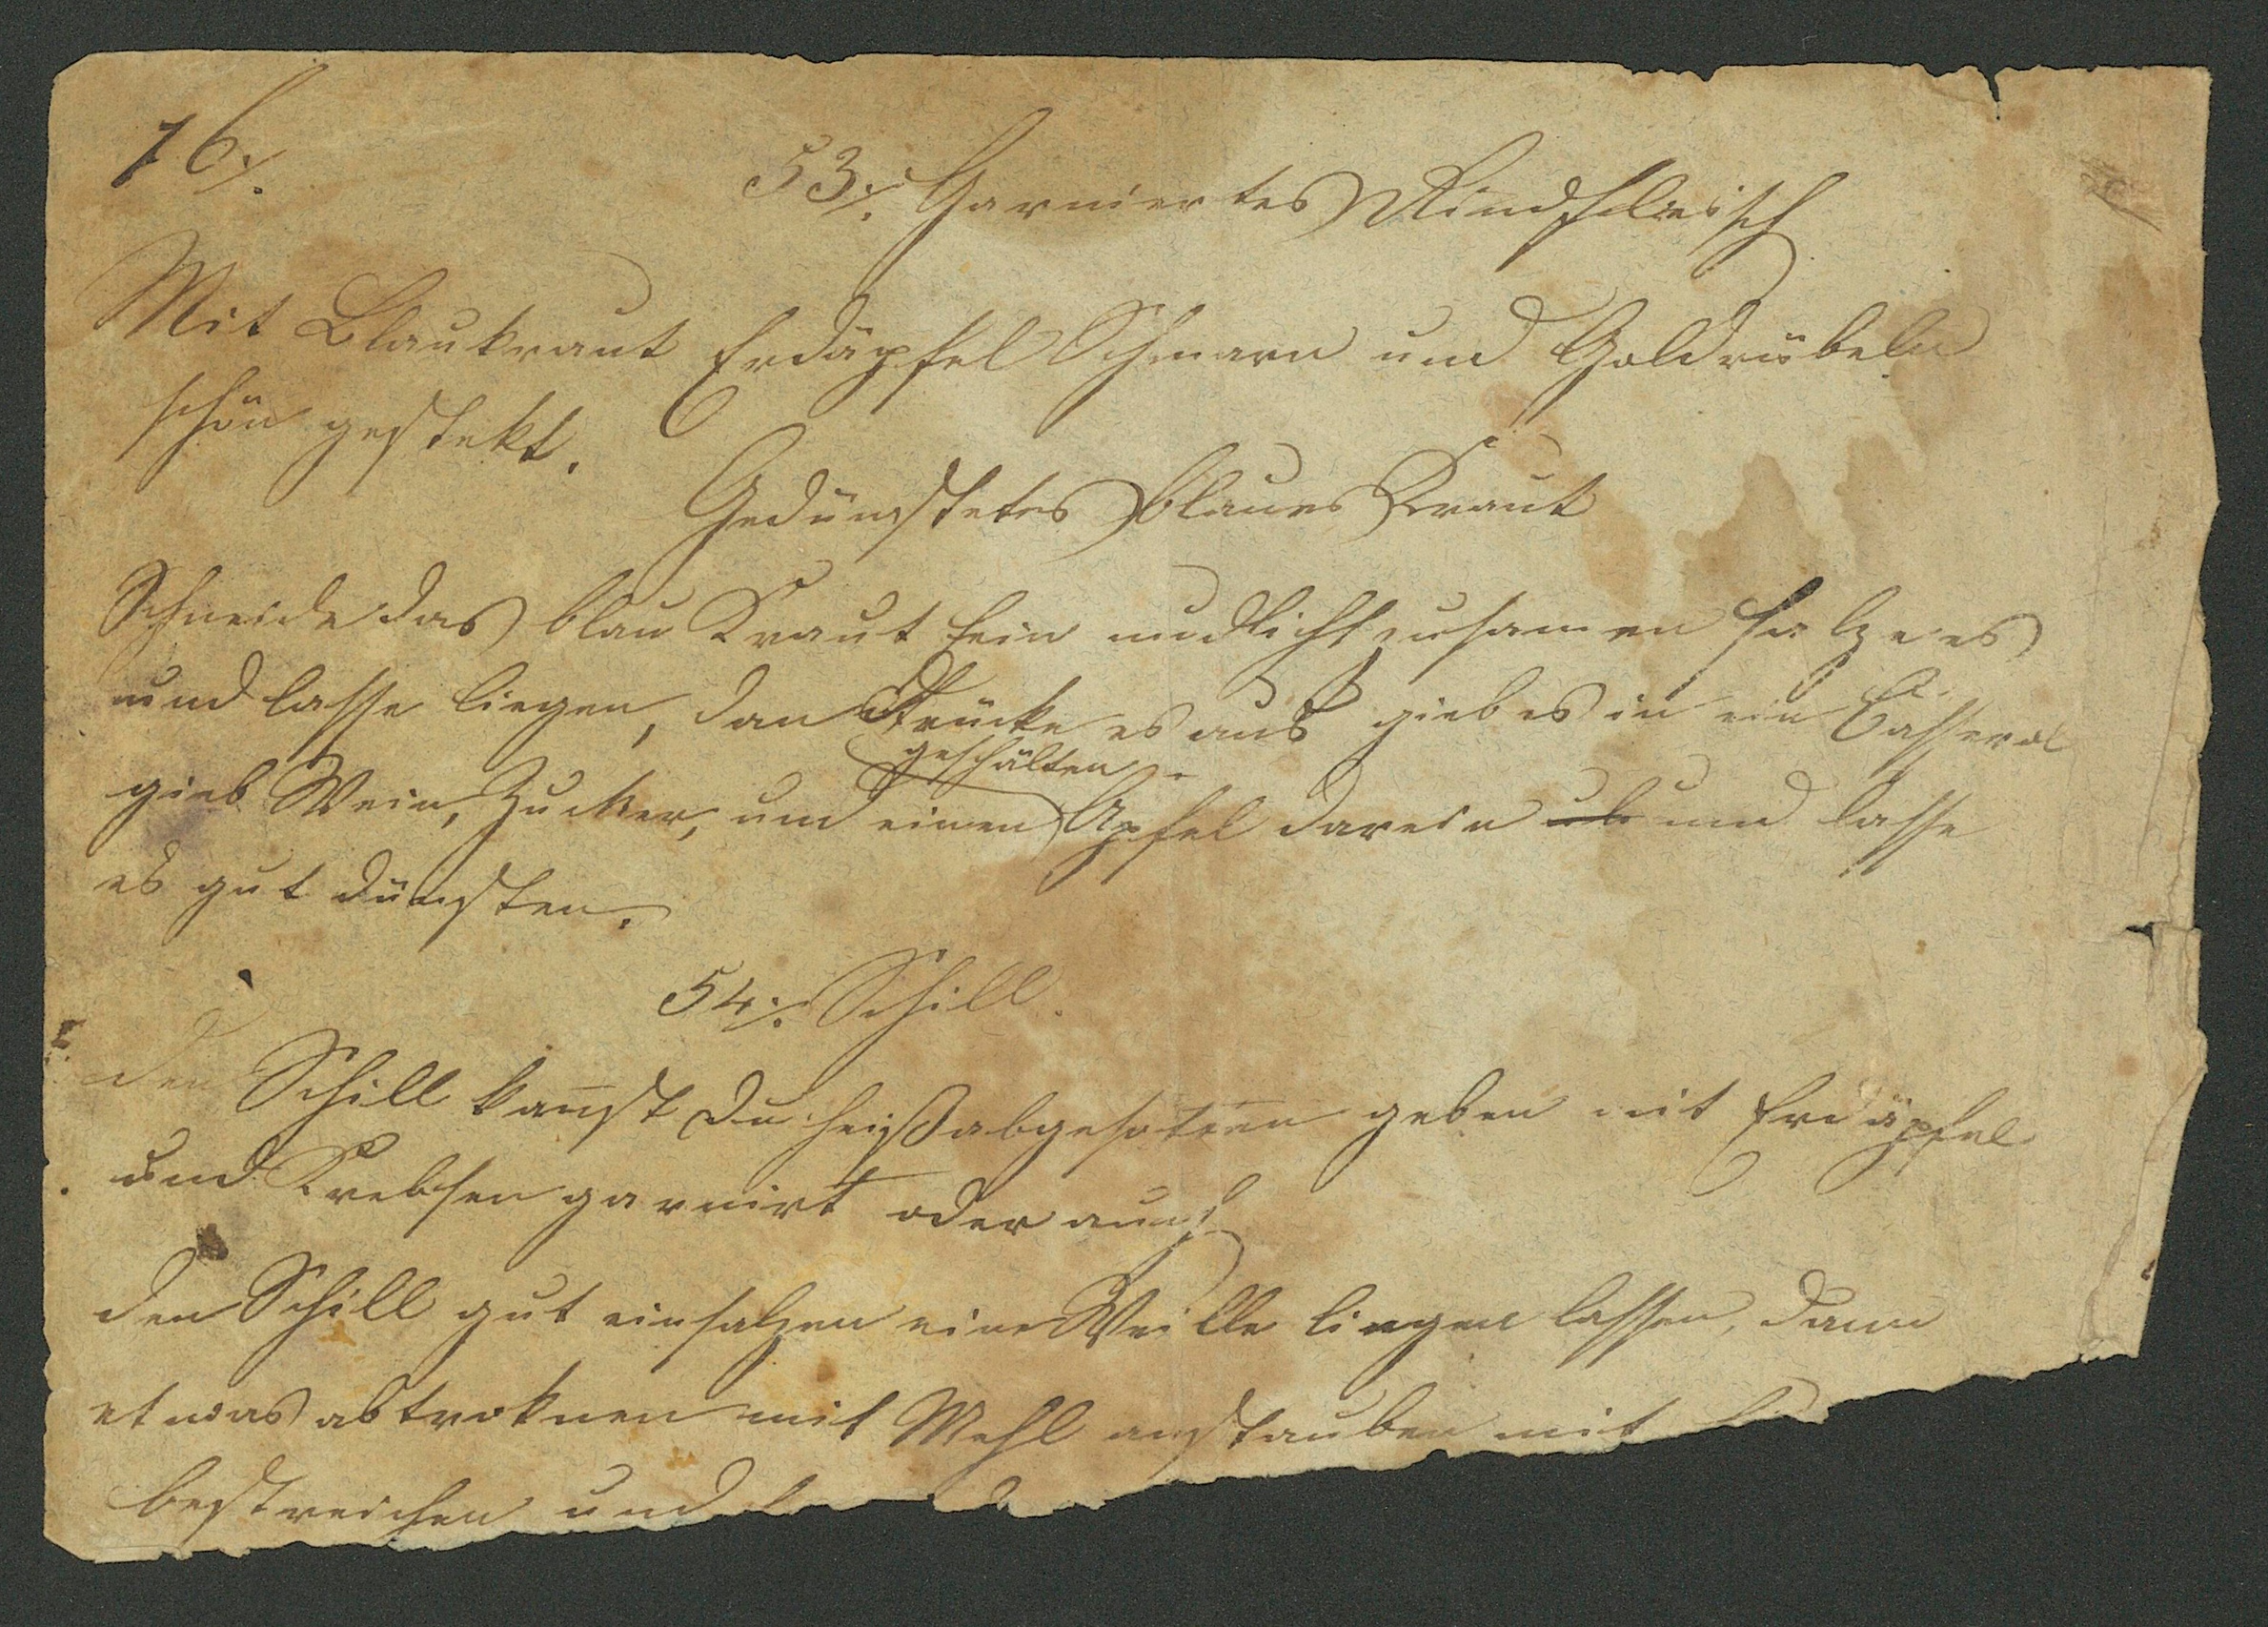 16./.
53./. Garniertes Rindfleisch
Mit Blaukraut Erdäpfel Schmarn und Goldrübeln
schön gestekt.
Gedünstetes blaues Kraut
Schneide das blau Kraut fein nudlicht zusamen salze es
und lasse liegen, dan drücke es aus gieb es in ein Casserol
geschälten
gieb Wein, Zucker, und einen Apfel darein und lasse
es gut dünsten.
54./. Schill.
Den Schill kanst du heiß abgesotten geben mit Erdäpfel
und Krebsen garnirt oder auch
den Schill gut einsalzen eine Weille liegen lassen, dann
etwas abtroknen mit Mehl anstauben mit
bestreichen und